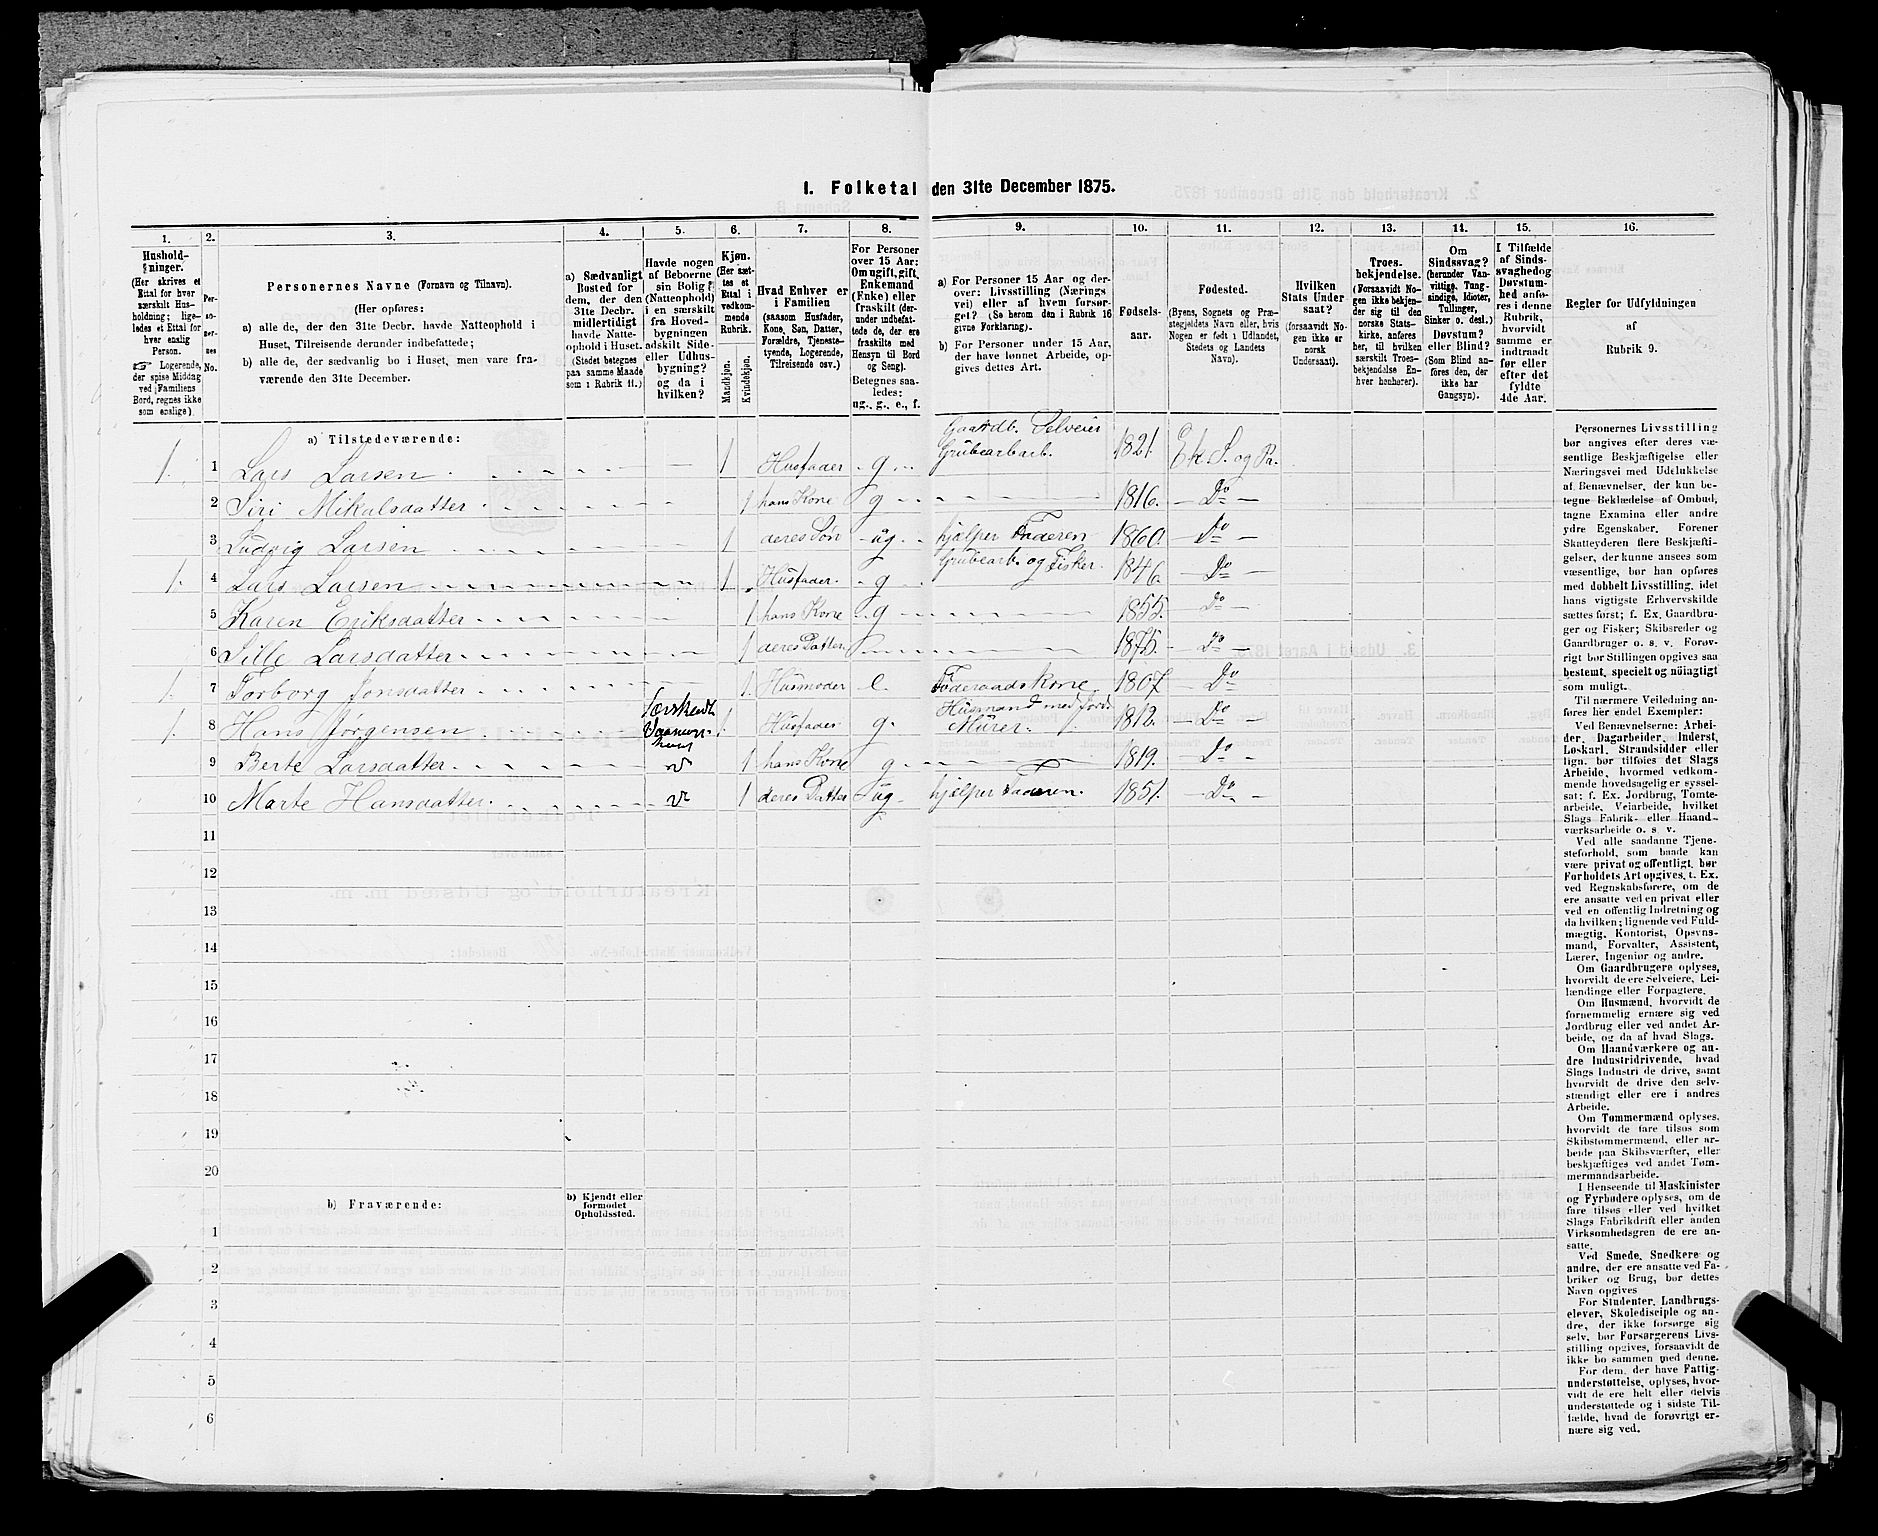 I. Folketal den 31te December 1875.
1. 2. 3. 4. 5. 6. 7. 8. 9. 10. 11. 12. 13. 14. 15. 16.
Husholdninger.
(Her skrives et
Ettal for hver
særskilt Husholdning;
ligeledes et Ettal for
hver enslig
Person.
Logerende,
der spise Middag
ved Familiens
Bord, regnes ikke
som enslige).
Personernes No.
Personernes Navne (Fornavn og Tilnavn).
(Her opføres:
a) alle de, der den 31te Decbr. havde Natteophold i
Huset, Tilreisende derunder indbefattede;
b) alle de, der sædvanlig bo i Huset, men vare fraværende
den 31te December.
a) Sædvanligt
Bosted for
dem, der den
31te Decbr.
midlertidigt
havde Natteophold
i Huset.
(Stedet betegnes
paa samme Maade
som i Rubrik 11.)
Havde nogen
af Beboerne
sin Bolig
(Natteophold)
i en særskilt
fra Hovedbygningen
adskilt Side-
eller Udhusbygning?
og da i
hvilken?
Kjøn.
(Her sættes
et Ettal i
vedkommende
Rubrik.
Mandkjøn.
Kvindekjøn.
Hvad Enhver er
i Familien
(saasom Husfader,
Kone, Søn, Datter,
Forældre, Tjenestetyende,
Logerende,
Tilreisende osv.)
For Personer
over 15 Aar:
Om ugift, gift,
Enkemand
(Enke) eller
fraskilt (derunder
indbefattede
de, der ere
fraskilte med
Hensyn til Bord
og Seng).
Betegnes saaledes:
ug., g., e., f.
a) For Personer 15 Aar og derover:
Livsstilling (Næringsvei)
eller af hvem forsørget?
(Se herom den i Rubrik 16
givne Forklaring).
b) For Personer under 15 Aar,
der have lønnet Arbeide, opgives
dettes Art.
Fødselsaar.
Fødested.
(Byens, Sognets og Præstegjeldets
Navn eller, hvis
Nogen er født i Udlandet,
Stedets og Landets
Navn).
Hvilken
Stats Undersaat?
(forsaavidt Nogen
ikke er
norsk
Undersaat).
Troesbekjendelse.
(Forsaavidt Nogen
ikke bekjender
sig til den
norske Statskirke,
anføres
her, til hvilken
særskilt Troesbekjendelse
Enhver
henhører).
Om
Sindssvag?
(herunder Vanvittige,
Tungsindige,
Idioter,
Tullinger,
Sinker o. desl.)
Døvstum?
eller Blind?
(Som Blind anføres
den, der
ikke har
Gangsyn).
I Tilfælde
af Sindssvaghed
og
Døvstumhed
anføres
i denne
Rubrik,
hvorvidt
samme er
indtraadt
før eller
efter det
fyldte
4de Aar.
Regler for Udfyldningen
af
Rubrik 9.
a) Tilstedeværende:
1. 1 Lars Larsen 1 Husfader g Gaardb. Selveier Grubearbarb. 1821. Ek. S. og Pr.
2 Siri Mikalsdatter 1 hans Kone g 1816. Do
3 Ludvig Larsen 1 deres Søn ug hjælper Faderen 1860. Do
1. 4 Lars Larsen 1 Husfader. g Grubearb. og Fisker. 1846. Do
5 Karen Eriksdatter 1 hans Kone g 1855. Do
6 Sille Larsdatter 1 deres Datter 1875. Do
1. 7 Torborg Jonsdatter 1. Husmoder e. Føderaadskone. 1807. Do
1. 8 Hans Jørgensen 1. Husfader g. Husmand med Jord. Murer. 1812. Do
9 Berte Larsdatter 1 hans Kone g 1819. Do
10 Marte Hansdatter. 1 deres Datter ug hjælper Faderen. 1851. Do
11
12
13
14
15
16
17
18
19
20
b) Fraværende:
b) Kjendt eller
formodet
Opholdssted.
1
2
3
4
5
6
Personernes Livsstilling
bør angives efter deres væsentlige
Beskjæftigelse eller
Næringsvei med Udelukkelse
af Benævnelser, der kun betegne
Beklædelse af Ombud,
tagne Examina eller andre
ydre Egenskaber. Forener
Skatteyderen flere Beskjæftigelser,
der kunne ansees som
væsentlige, bør han opføres
med dobbelt Livsstilling, idet
hans vigtigste Erhvervskilde
sættes først; f. Ex. Gaardbruger
og Fisker; Skibsreder og
Gaardbruger o. s. v. Forøvrigt
bør Stillingen opgives saa
bestemt, specielt og nøiagtigt
som muligt.
Til nærmere Veiledning anføres
her endel Exempler:
Ved Benævnelserne: Arbeider,
Dagarbeider, Inderst,
Løskarl, Strandsidder eller
lign. bør tilføies det Slags
Arbeide, hvormed vedkommende
hovedsagelig er sysselsat;
f. Ex. Jordbrug, Tomtearbeide,
Veiarbeide, hvilket
Slags Fabrik- eller Haandværksarbeide
o. s. v.
Ved alle saadanne Tjenesteforhold,
som baade kan
være privat og offentligt, bør
Forholdets Art opgives, t. Ex.
ved Regnskabsførere, om de
ere ansatte ved en privat eller
ved en offentlig Indretning og
da hvilken; lignende ved Fuldmægtig,
Kontorist, Opsynsmand,
Forvalter, Assistent,
Lærer, Ingeniør og andre.
Om Gaardbrugere oplyses,
hvorvidt de ere Selveiere, Leilændinge
eller Forpagtere.
Om Husmænd, hvorvidt de
fornemmelig ernære sig ved
Jordbrug eller ved andet Arbeide,
og da af hvad Slags.
Om Haandværkere og andre
Industridrivende, hvad
Slags Industri de drive, samt
hvorvidt de drive den selvstændigt
eller ere i andres
Arbeide.
Om Tømmermænd oplyses,
hvorvidt de fare tilsøs som
Skibstømmermænd, eller arbeide
paa Skibsværfter, eller
beskjæftiges ved andet Tømmermandsarbeide.
I Henseende til Maskinister
og Fyrbødere oplyses, om de
fare tilsøs eller ved hvilket
Slags Fabrikdrift eller anden
Virksomhedsgren de ere ansatte.
Ved Smede, Snedkere og
andre, der ere ansatte ved Fabriker
og Brug, bør dettes
Navn opgives
For Studenter, Landbrugselever,
Skoledisciple og andre,
der ikke forsørge sig
selv, bør Forsørgerens Livsstilling
opgives, forsaavidt de
ikke bo sammen med denne.
For dem, der have Fattigunderstøttelse,
oplyses, hvorvidt
de ere helt eller delvis
understøttede og i sidste Tilfælde,
hvad de forøvrigt ernære
sig ved.